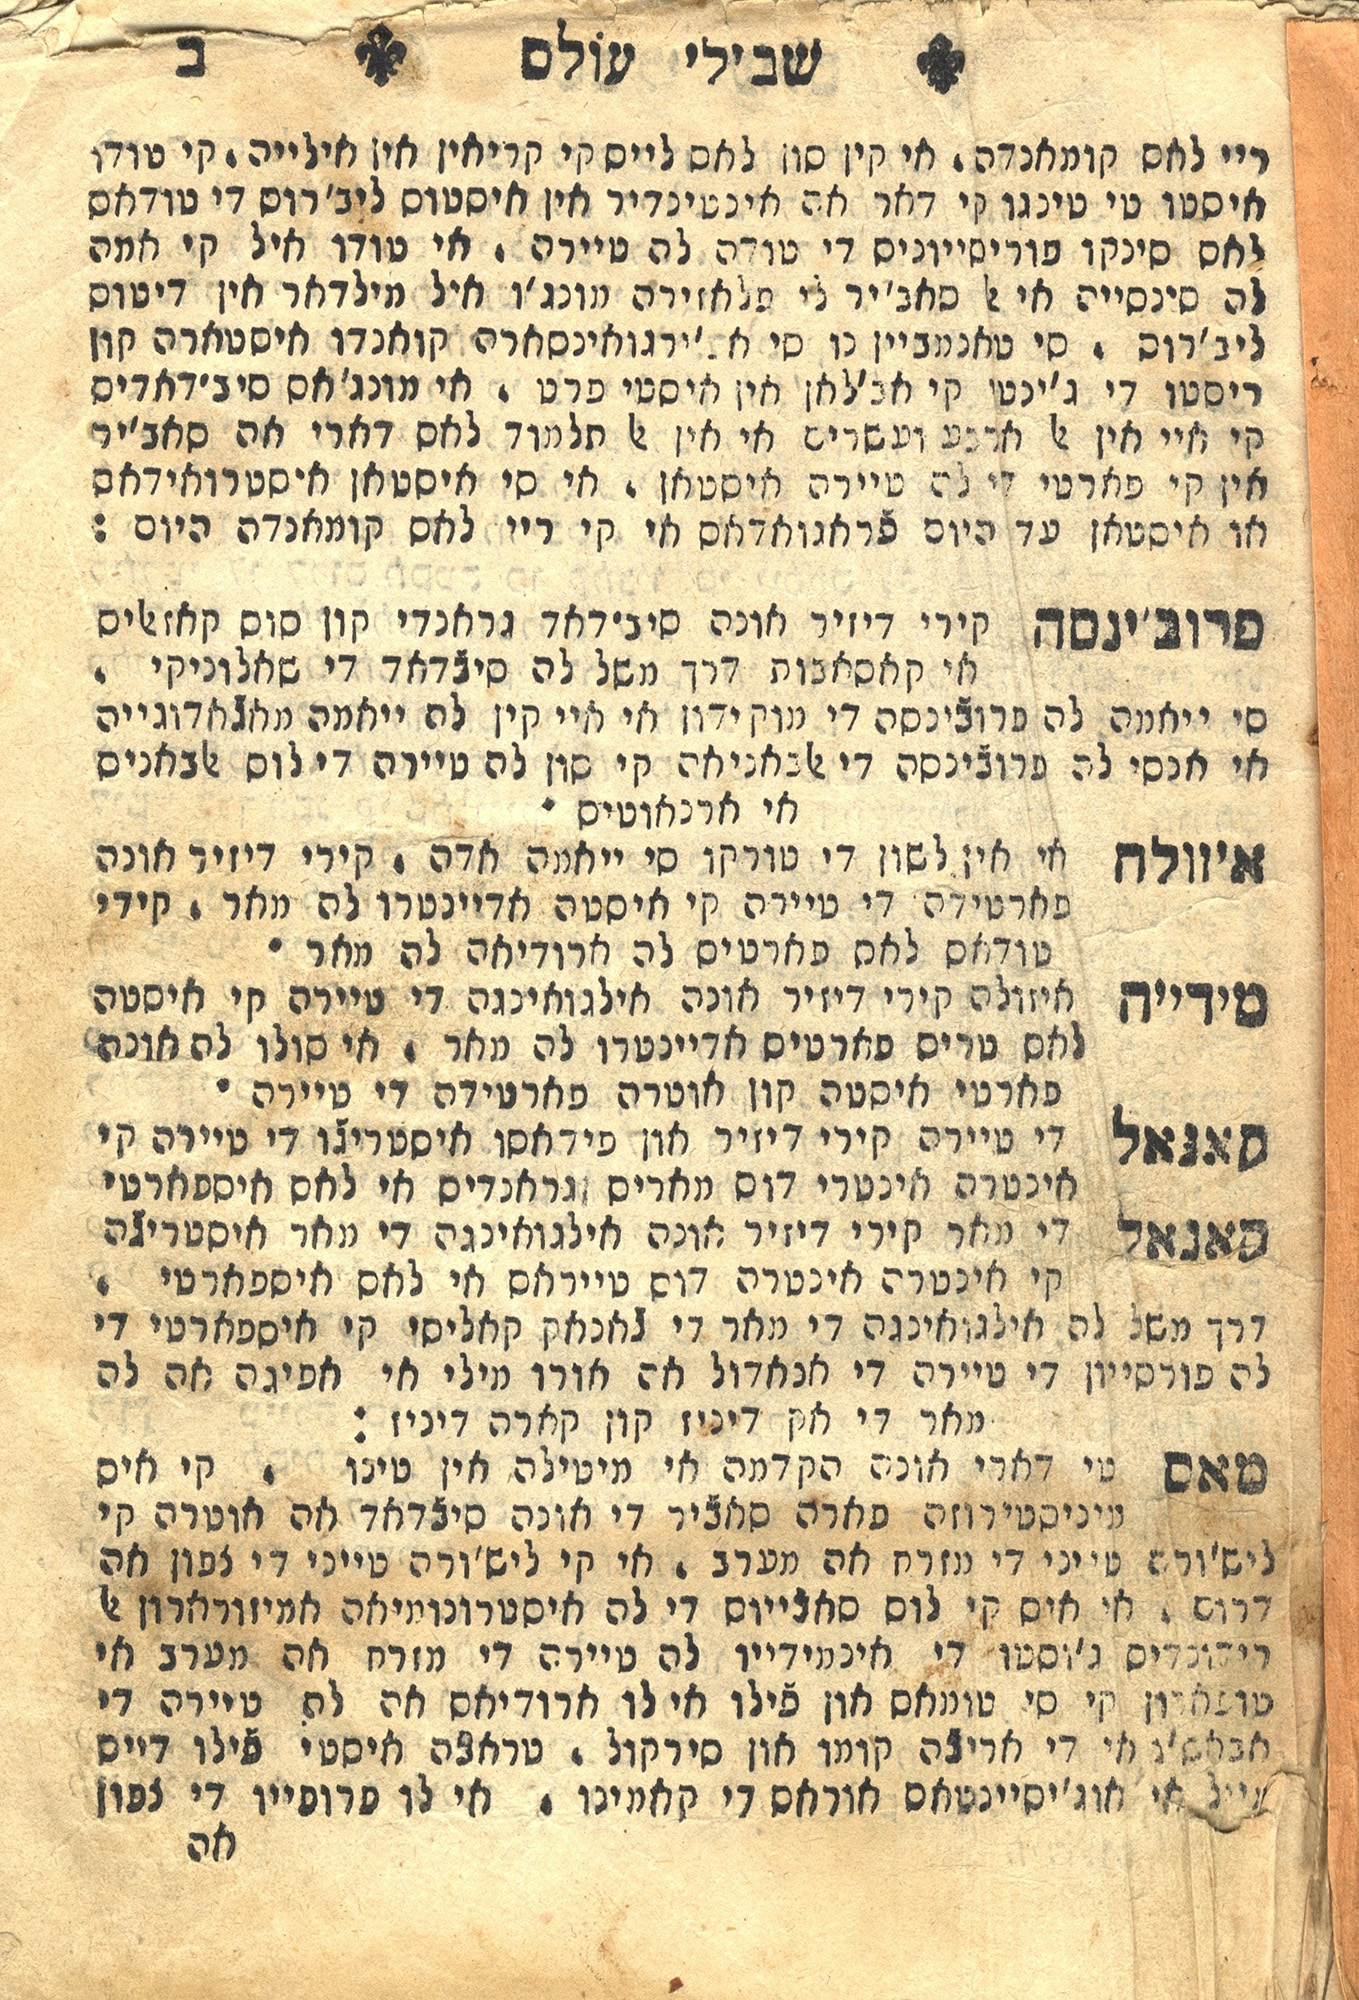 שבילי עולם ב
ריי לאס קומאנדה, אי קין סון לאס לייס קי קריאין אין אילייה, קי טודו
איסטו טי טינגו קי דאר אה אינטינדיר אין איסטוס ליב׳רוס די טודאס
לאס סינקו פורסייוניס די טודה לה טיירה, אי טודו איל קי אמה
לה סינסייה אי ﭏ סאב׳יר לי פלאזירה מונג׳ו איל מילדאר אין דיטוס
ליב׳רוס, סי טאנמביין נו סי קואנדו איסטארה קון
ריסטו די ג׳ינטי קי אב׳לאן אין איסטי פרט, אי מונג׳אס סיב׳דאדיס
קי איי אין ﭏ ארבע ועשרים אי אין ﭏ תלמוד לאס דארי אה סאב׳יר
אין קי פארטי די לה טיירה איסטאן, אי סי איסטאן איסטרואידאס
או איסטאן עד היום פ֘ראגואדאס אי קי ריי לאס קומאנדה היום :
פרוב׳ינסה קירי דיזיר אונה סיב׳דאד גראנדי קון סוס קאזﭏיס
אי קאסאבות דרך משל לה סיב֘דאד די שאלוניקי,
סי ייאמה לה פרוב֘ינסה די מוקידון אי איי קין לה ייאמה מאג֘אדוגייה
אי אנסי לה פרוב֘ינסה די ﭏבאניאה קי סון לה טיירה די לוס ﭏבאניס
אי ארנאוטיס •
איזולה אי אין לשון די טורקו סי ייאמה אדה, קירי דיזיר אונה
פארטידה די טיירה קי איסטה אדיינטרו לה מאר, קידי
טודאס לאס פארטיס לה ארודיאה לה מאר •
מידייה איזולה קירי דיזיר אונה אילגואינגה די טיירה קי איסטה
לאס טריס פארטיס אדיינטרו לה מאר, אי סולו לה אונה
פארטי איסטה קון אוטרה פארטידה די טיירה •
סאנאל די טיירה קירי דיזיר און פידאסו איסטריג֘ו די טיירה קי
אינטרה אינטרי דוס מאריס גראנדיס אי לאס איספארטי
פאנאל די מאר קירי דיזיר אונה אילגואינגה די מאר איסטריג֘ה
קי אינטרה אינטרה דוס טייראס אי לאס איספארטי,
דרך משל לה אילגואינגה די מאר די ג֘אנאק קאליסי קי איספארטי די
לה פורסייון די טיירה די אנאדול אה אורו מילי אי אפיגה אה לה
מאר די אק דיניז קון קארה דיניז :
מאס טי דארי אונה הקדמה אי מיטילה אין טינו, קי איס
מיניסטירוזה פארה סאב֘יר די אונה סיב֘דאד אה אוטרה קי
ליש׳ורה טייני די מזרח אה מערב, אי קי ליש׳ורה טייני די צפון אה
דרום, אי איס קי לוס סאב֘ייוס די לה איסטרונומיאה אמיזוראRון ﭏ
רידונדיס ג׳וסטו די אינמידייו לה טיירה די מזרח אה מערב אי
טופארון קי סי טומאס און פ֘ילו אי לו ארודיאס אה לה טיירה די
אבאש׳ו אי די אריב֘ה קומו און סירקול, טראב֘ה איסטי פ֘ילו דייס
מייל אי אוג׳יסיינטאס אוראס די קאמינו, אי לו פרופייו די צפון
אה